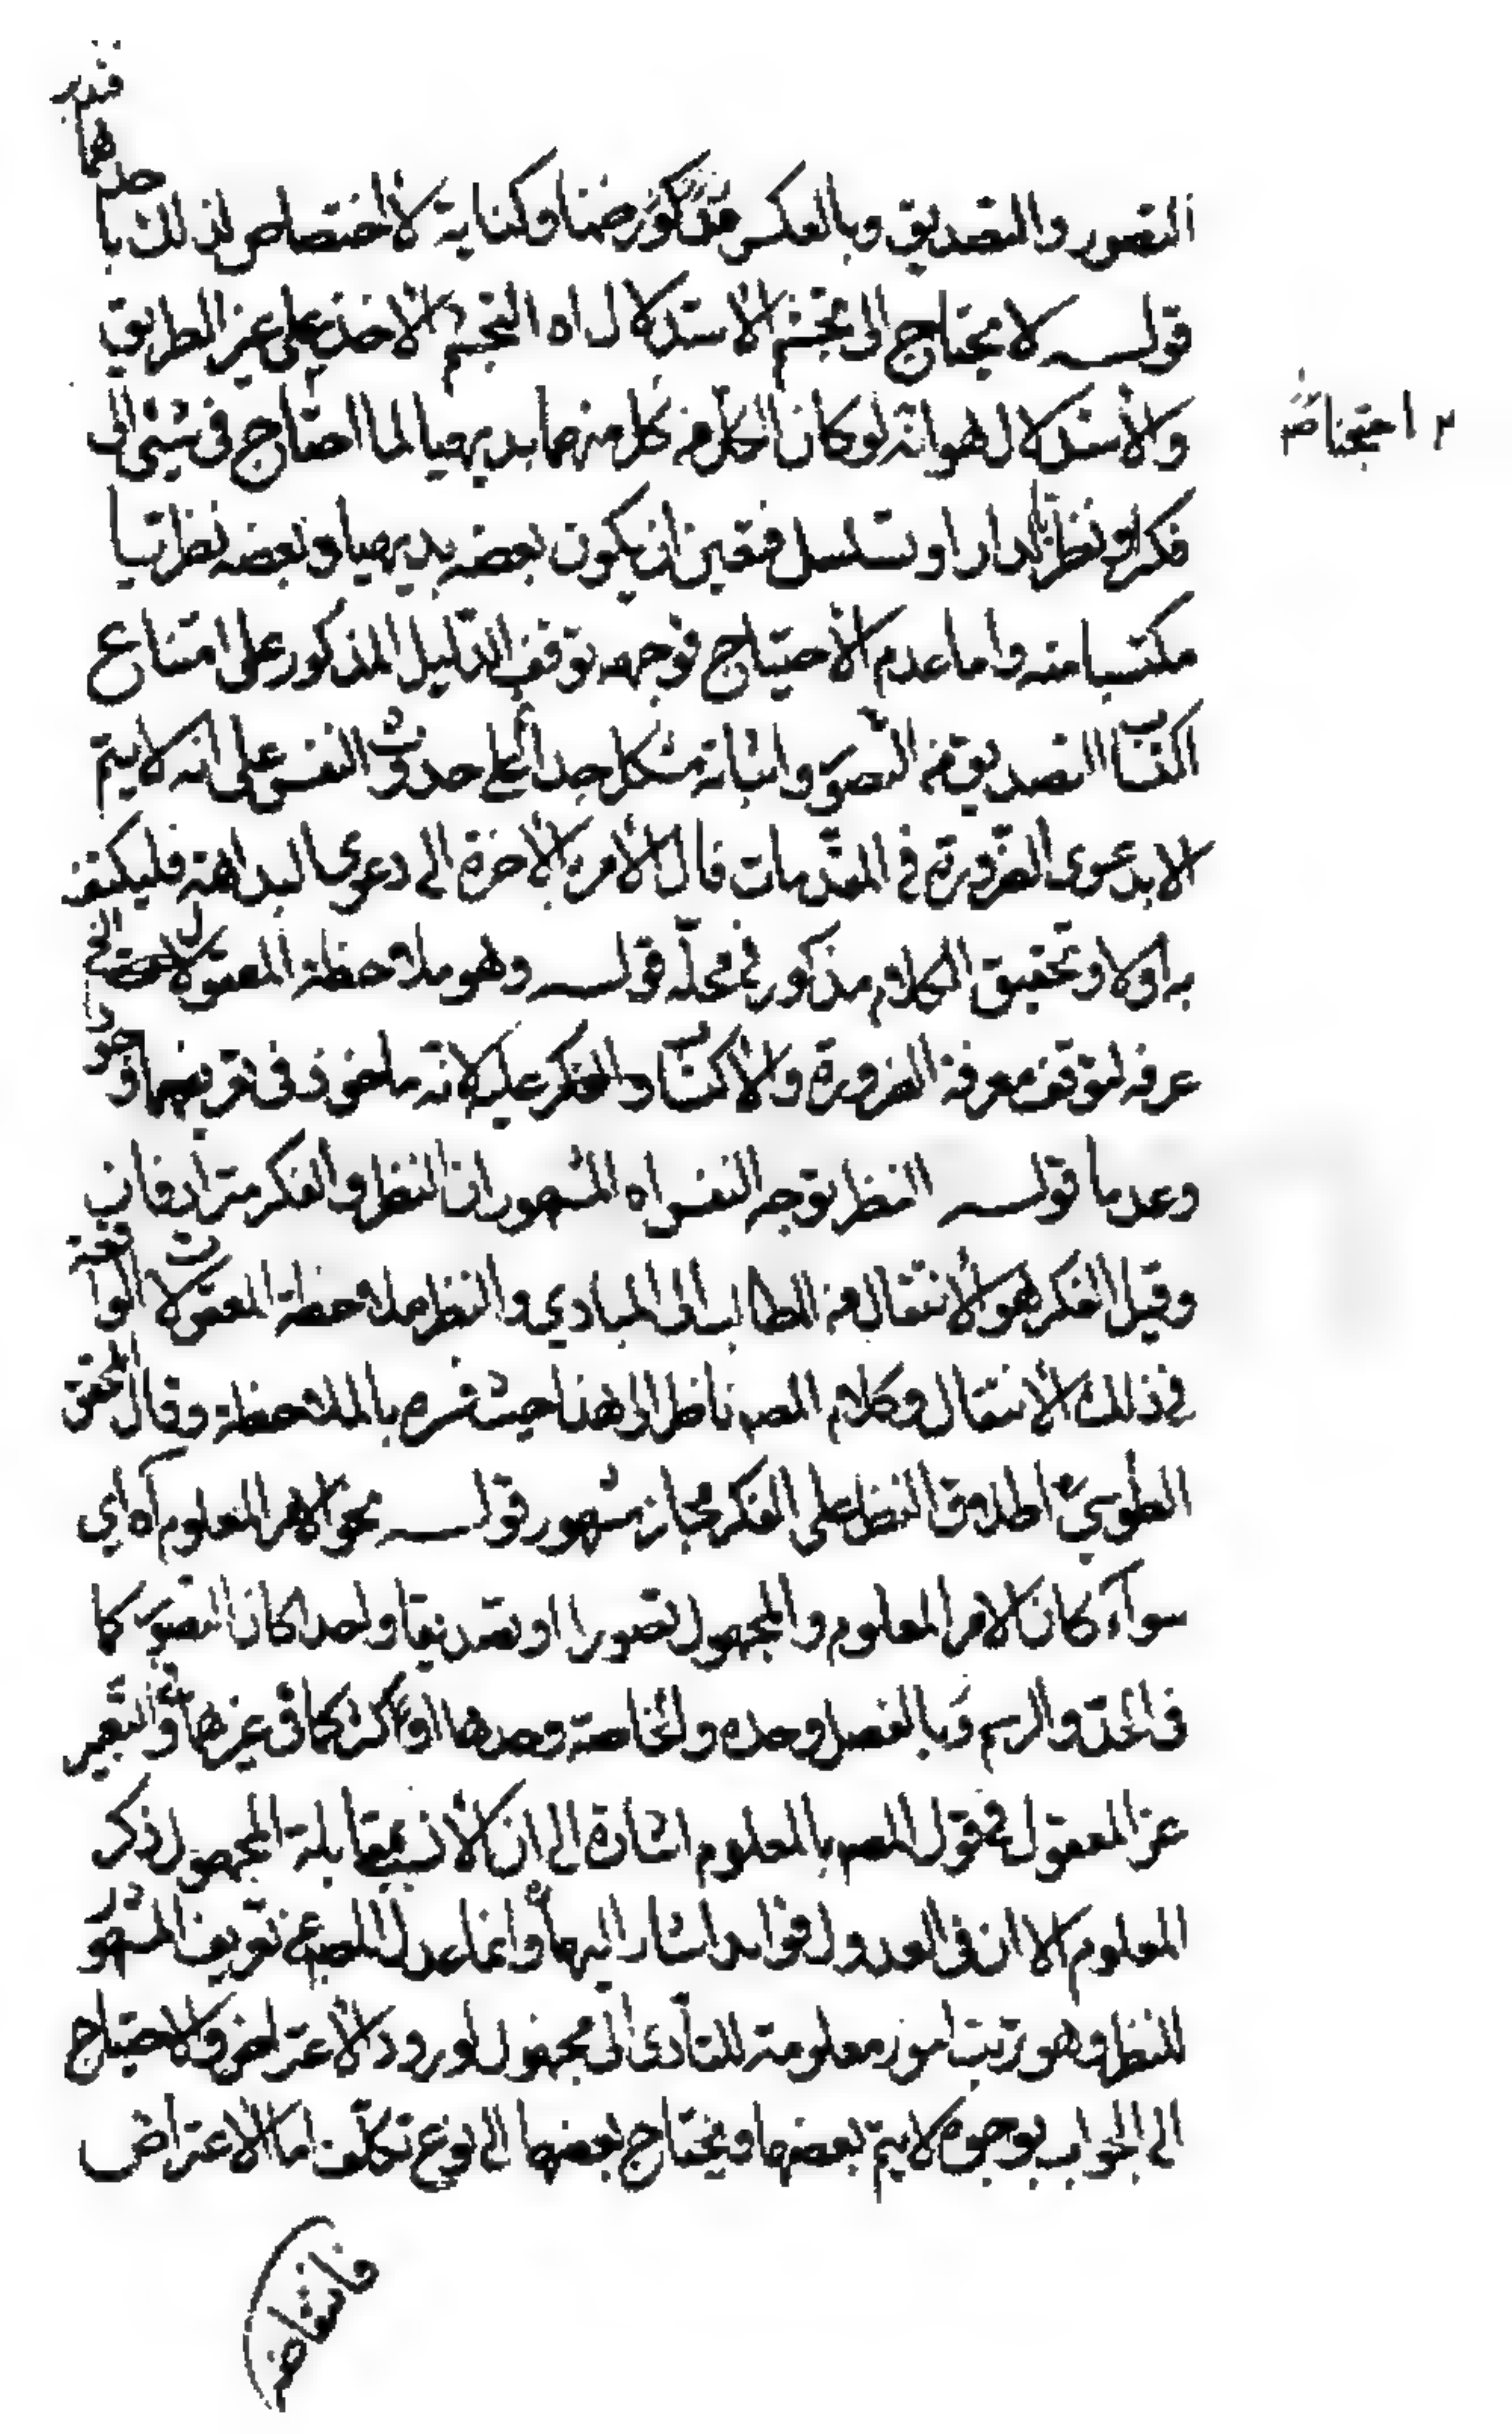 التصور والتصديق وبالعكس مذكور ضمنا وكناية لا اختصاص لذلك با
حدهما فتدبر
قولـه لا يحتاج الى تجشم الاستدلال اه التجشم الاخذ على غير الطريق
والاستدلال هو انه لو كان الكل من كل منهما بديهيا لما احتاج في شيئ الى
احتجنا نسخه
فكر او نظريا لدار او تسلسل فتعين ان يكون بعضه بديهيا وبعضه نظريا
مكتسبا منه واما عدم الاحتياج فوجهه توقف الدليل المذكور على امتناع
اكتساب التصديق من التصور واثباته مشكل جدا على حدوث النفس على انه لا يتم
الا بدعوى الضرورة في المقدمات فال الامر بالاخرة الى دعوى البداهة فليكتف
به اولا وتحقيق الكلام مذكور في محله قولـه وهو ملاحظة المعقول الخ
عرفه لتوقف معرفة الضرورة والاكتساب والفكر عليه لانه ماخوذ في تعريفهما وجودا
وعدما قولـه النظر توجه النفس اه المشهور ان النظر والفكر مترادفان
وقيل الفكر هو الانتقال من المطالب الى المبادي والنظر ملاحظة المعقولات الواقعة
في ذلك الانتقال وكلام المصـ ناظر الى هذا حيث فسره بالملاحظة وقال المحقق
الطوسي اطلاق النظر على الفكر مجاز مشهور قولـه نحو الامر المعلوم آه اي
سوآء كان الامر المعلوم والمجهول تصورا او تصديقا واحدا كان التصور كا
في الحد والرسم وبالفصل وحده والخاصة وحدها او اكثر كما في غيرها والتعبير
عن المعقول في قول المصـ بالمعلوم اشارة الى ان الانسب بمقابلة المجهول ذكر
المعلوم الا ان في العدول فوايد اشار اليها وانما عدل المصـ عن تعريف المشهور
للنظر وهو ترتيب امور معلومة للتأدى الى مجهول لورود الاعتراض والاحتياج
الى الجواب بوجوه لا يتم بعضها ويحتاج بعضها الى نوع تكلف اما الاعتراض